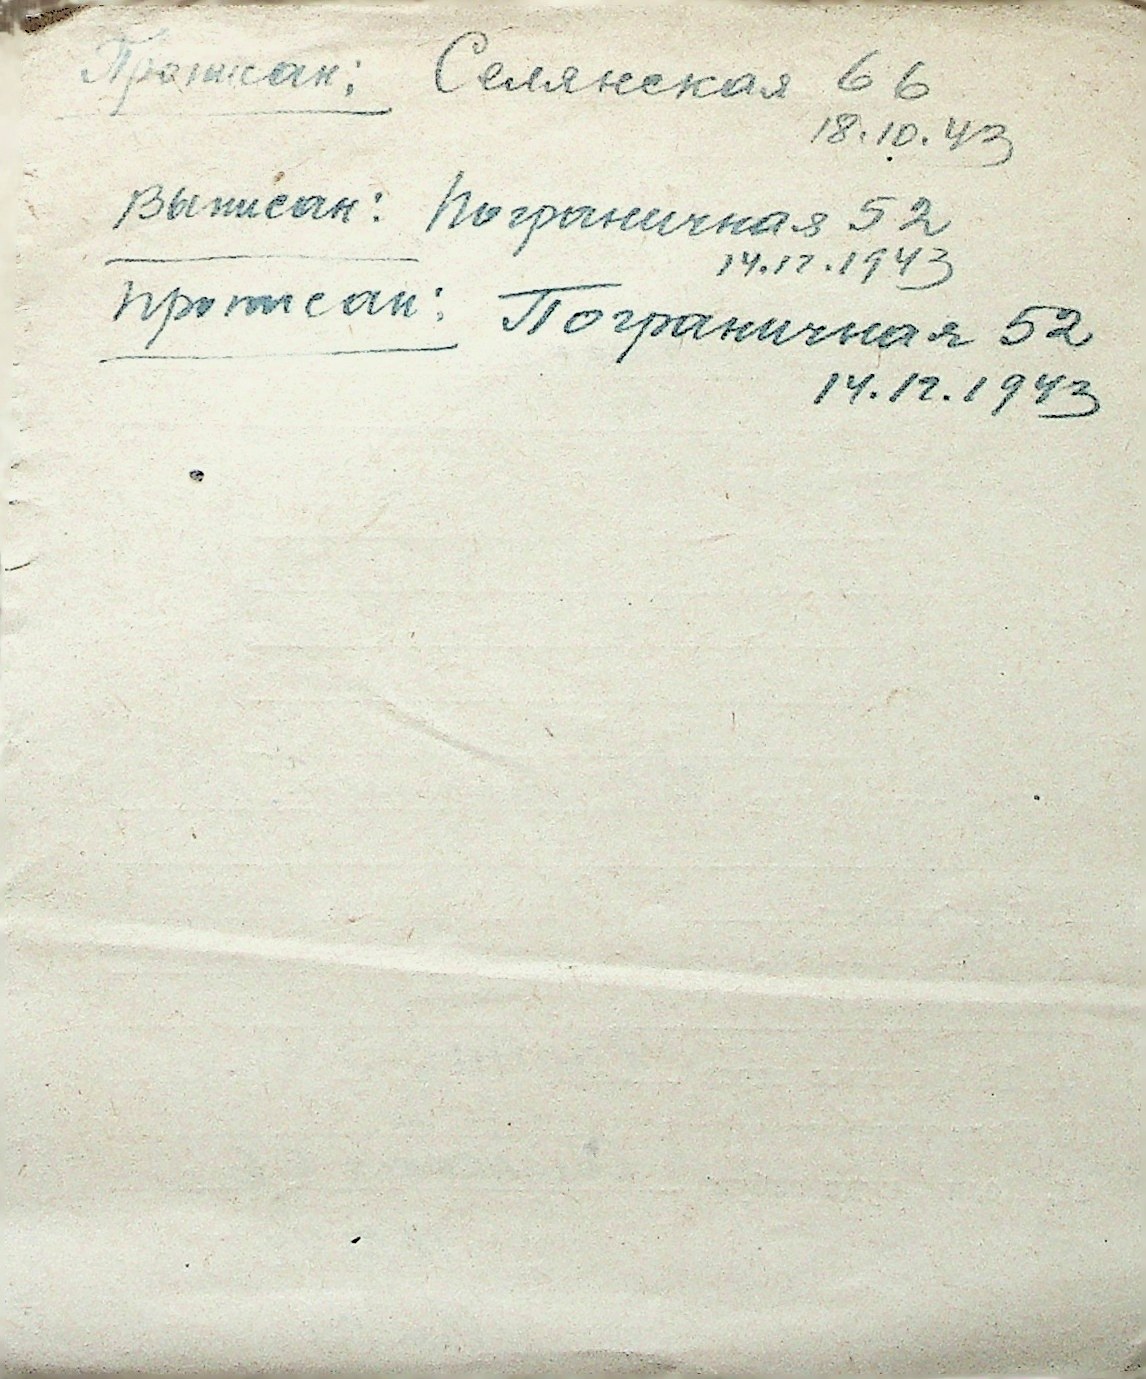 Прописан: Селянская 66
18.10.43
Выписан: Пограничная 52
14.12.1943
Прописан: Пограничная 52
14.12.1943